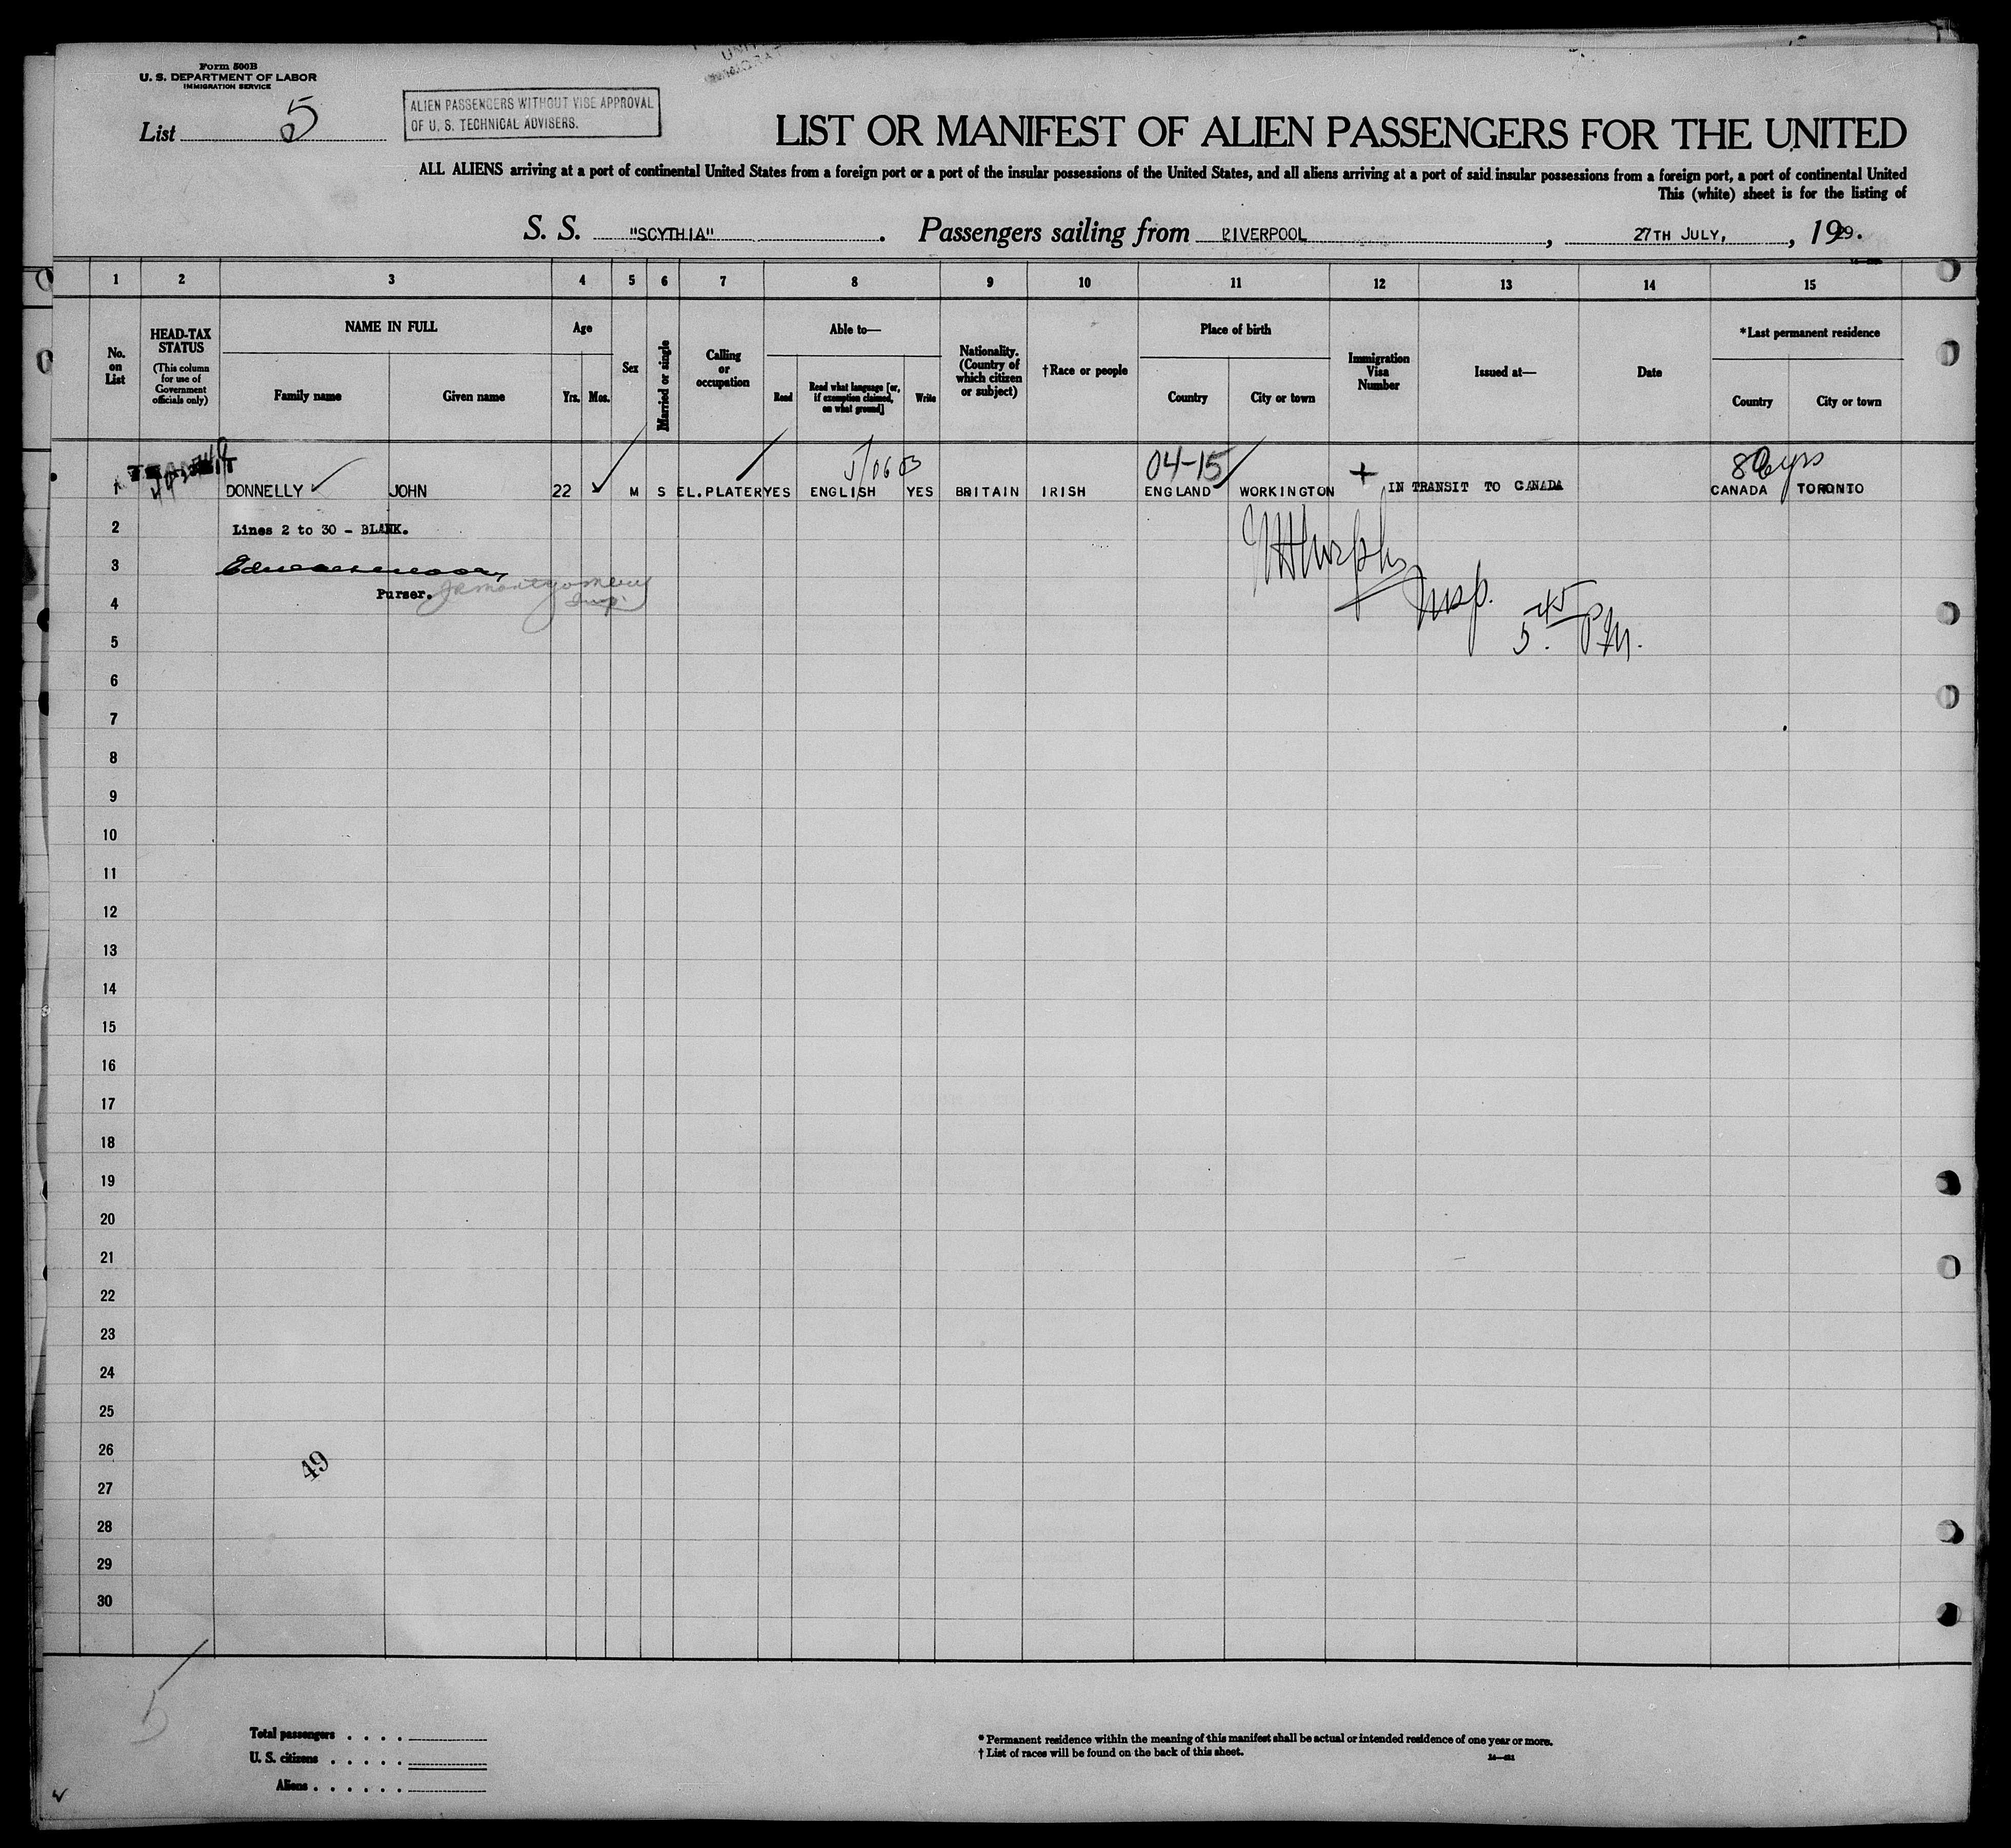 Form 500B
U. S. DEPARTMENT OF LABOR
IMMIGRATION SERVICE
List 5
ALIEN PASSENGERS WITHOUT VISE APPROVAL
OF U. S. TECHNICAL ADVISERS.
LIST OR MANIFEST OF ALIEN PASSENGERS FOR THE UNITED
ALL ALIENS arriving at a port of continental United States from a foreign port or a port of the insular possessions of the United States, and all aliens arriving at a port of said insular possessions from a foreign port, a port of continental United
This (white) sheet is for the listing of
S. S. "SCYTHIA". Passengers sailing from LIVERPOOL, 27TH JULY, 1929.
1 2 3 4 5 6 7 8 9 10 11 12 13 14 15
No. on List
HEAD-TAX STATUS
(This column for use of Government officials only)
NAME IN FULL
Family name Given name
Age
Yrs. Mos.
Sex
Married or single
Calling or occupation
Able to—
Read
Read what language [or, if exemption claimed, on what ground]
Write
Nationality. (Country of which citizen or subject)
†Race or people
Place of birth
Country City or town
Immigration Visa Number
Issued at—
Date
*Last permanent residence
Country City or town
04-15
1 DONNELLY JOHN 22 M S EL.PLATER YES ENGLISH YES BRITAIN IRISH ENGLAND WORKINGTON IN TRANSIT TO CANADA CANADA TORONTO
2 Lines 2 to 30 - BLANK.
3
Purser. Insp.
Insp. 5.45 PM.
4
5
6
7
8
9
10
11
12
13
14
15
16
17
18
19
20
21
22
23
24
25
26
49
27
28
29
30
5
Total passengers . . . .
U. S. citizens . . . . .
Aliens . . . . . .
* Permanent residence within the meaning of this manifest shall be actual or intended residence of one year or more.
† List of races will be found on the back of this sheet.